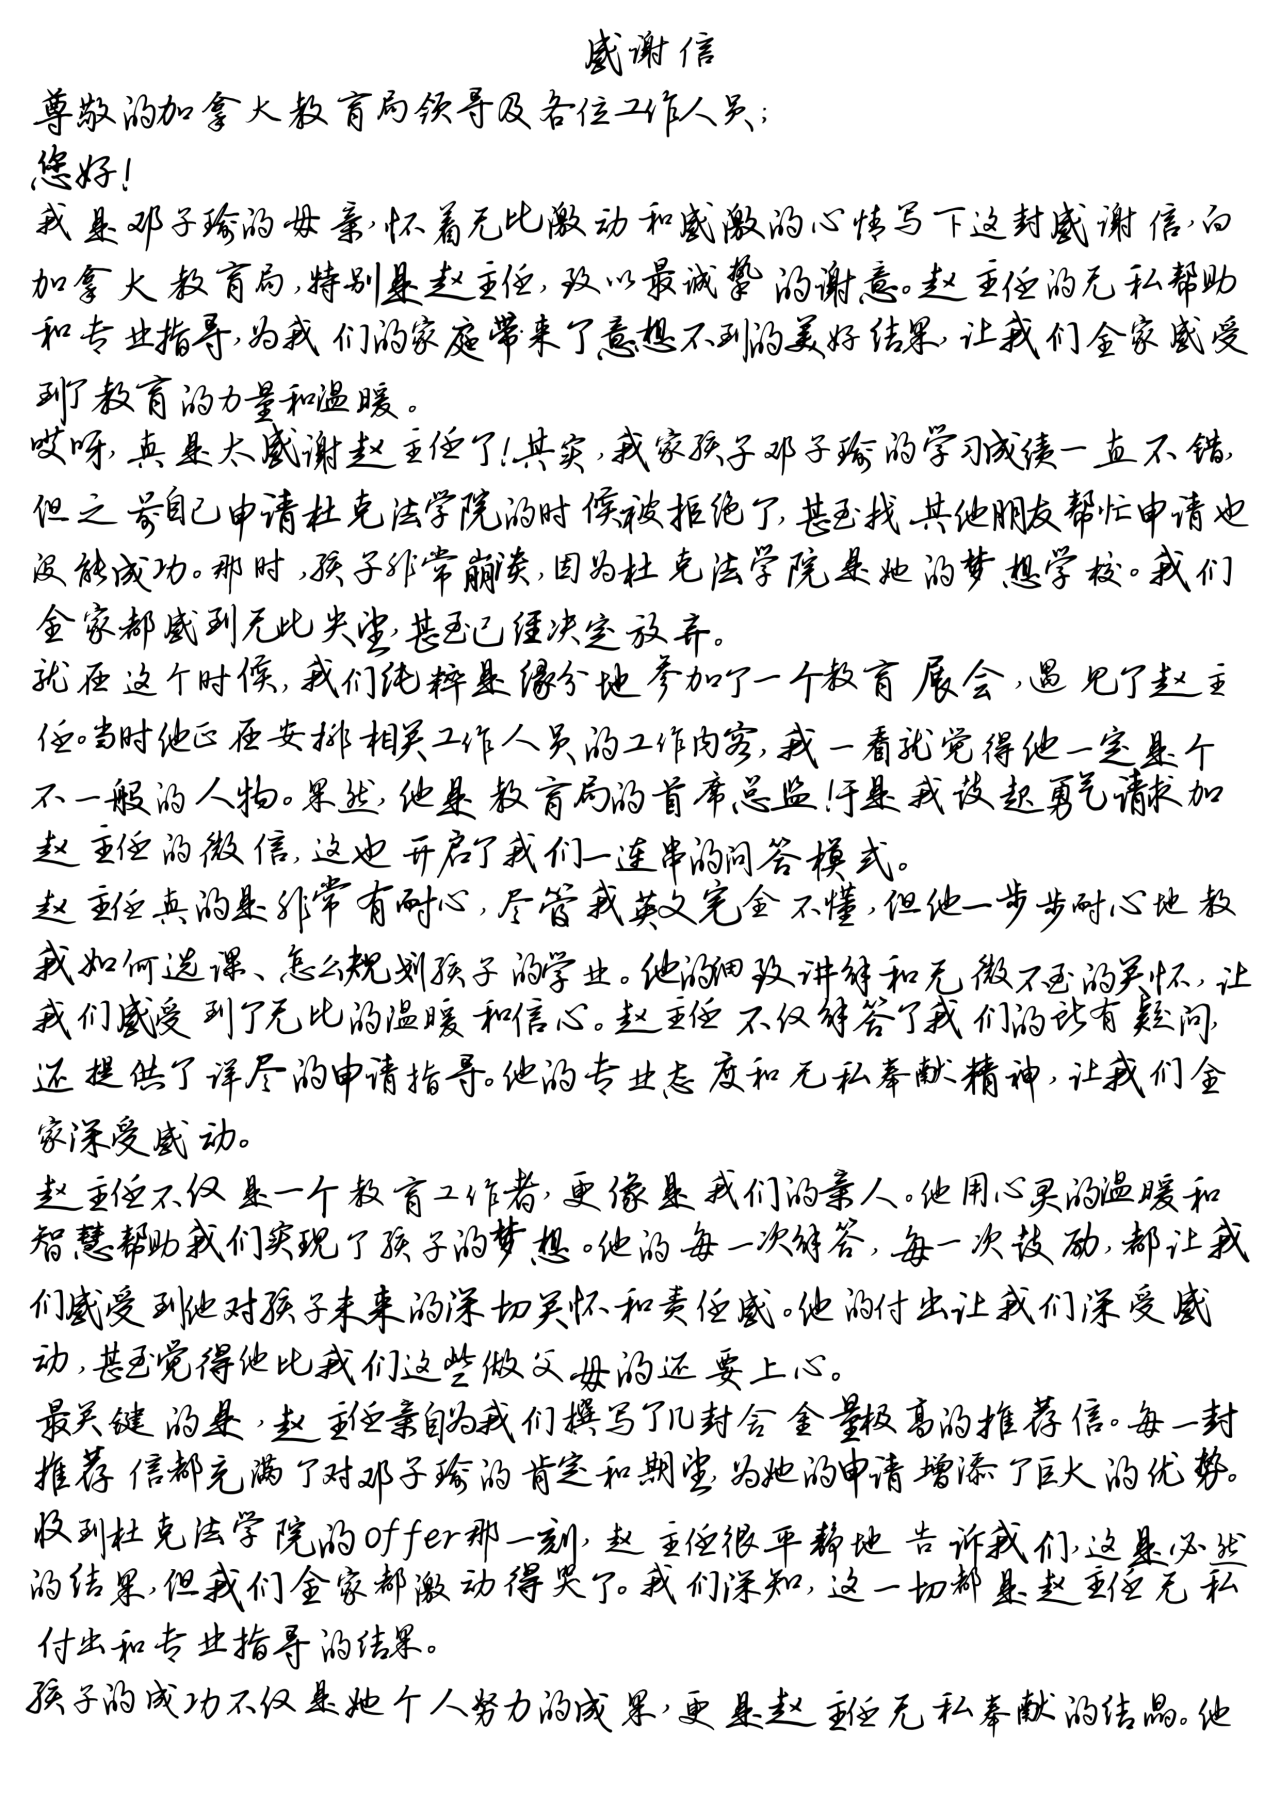 感谢信
尊敬的加拿大教育局领导及各位工作人员；
您好！
我是邓子瑜的母亲，怀着无比激动和感激的心情写下这封感谢信，向
加拿大教育局，特别是赵主任，致以最诚挚的谢意。赵主任的无私帮助
和专业指导，为我们的家庭带来了意想不到的美好结果，让我们全家感受
到了教育的力量和温暖。
哎呀，真是太感谢赵主任了！其实，我家孩子邓子瑜的学习成绩一直不错，
但之前自己申请杜克法学院的时候被拒绝了，甚至找其他朋友帮忙申请也
没能成功。那时，孩子非常崩溃，因为杜克法学院是她的梦想学校。我们
全家都感到无比失望，甚至已经决定放弃。
就在这个时候，我们纯粹是缘分地参加了一个教育展会，遇见了赵主
任。当时他正在安排相关工作人员的工作内容，我一看就觉得他一定是个
不一般的人物。果然，他是教育局的首席总监！于是我鼓起勇气请求加
赵主任的微信，这也开启了我们一连串的问答模式。
赵主任真的是非常有耐心，尽管我英文完全不懂，但他一步步耐心地教
我如何选课、怎么规划孩子的学业。他的细致讲解和无微不至的关怀，让
我们感受到了无比的温暖和信心。赵主任不仅解答了我们的所有疑问，
还提供了详尽的申请指导。他的专业态度和无私奉献精神，让我们全
家深受感动。
赵主任不仅是一个教育工作者，更像是我们的亲人。他用心灵的温暖和
智慧帮助我们实现了孩子的梦想。他的每一次解答，每一次鼓励，都让我
们感受到他对孩子未来的深切关怀和责任感。他的付出让我们深受感
动，甚至觉得他比我们这些做父母的还要上心。
最关键的是，赵主任亲自为我们撰写了几封含金量极高的推荐信。每一封
推荐信都充满了对邓子瑜的肯定和期望，为她的申请增添了巨大的优势。
收到杜克法学院的offer那一刻，赵主任很平静地告诉我们，这是必然
的结果，但我们全家都激动得哭了。我们深知，这一切都是赵主任无私
付出和专业指导的结果。
孩子的成功不仅是她个人努力的成果，更是赵主任无私奉献的结晶。他